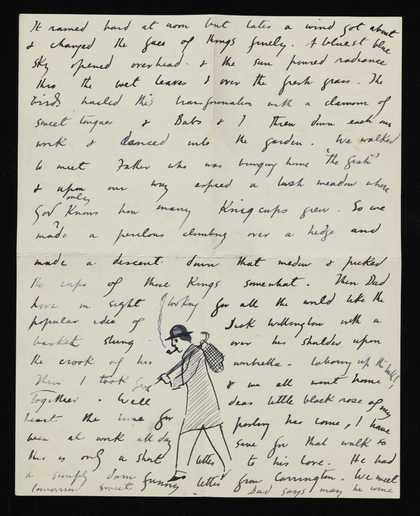 It rained hard at noon but later a wind got about
& changed the face of things finely. A bluest blue
sky opened overhead & the sun poured radiance
thro the wet leaves & over the fresh grass. The
birds hailed this transformation with a clamour of
sweet tongues & Babs & I threw down each our
work & danced into the garden. We walked
to meet Father who was bringing home "the
& upon our way espied a lush meadow where
God only knows how many King cups grew. So we
made a perilous climbing over a hedge and
made a descent down that meadow & picked
the cups of those Kings somewhat. Then Dad
hove in sight looking for all the world like the
popular idea of Dick Whittington with a
basket slung over his shoulder upon
the crook of his umbrella. up the hill!
Then I took & we all went home
together. Well dear little black rose of my
heart the time for posting has come, I have
been at work all day save for that walk so
this is only a short letter to his love. He had
a simply damn funny letter from Carrington. We meet
tomorrow sweet Dad says I may be some